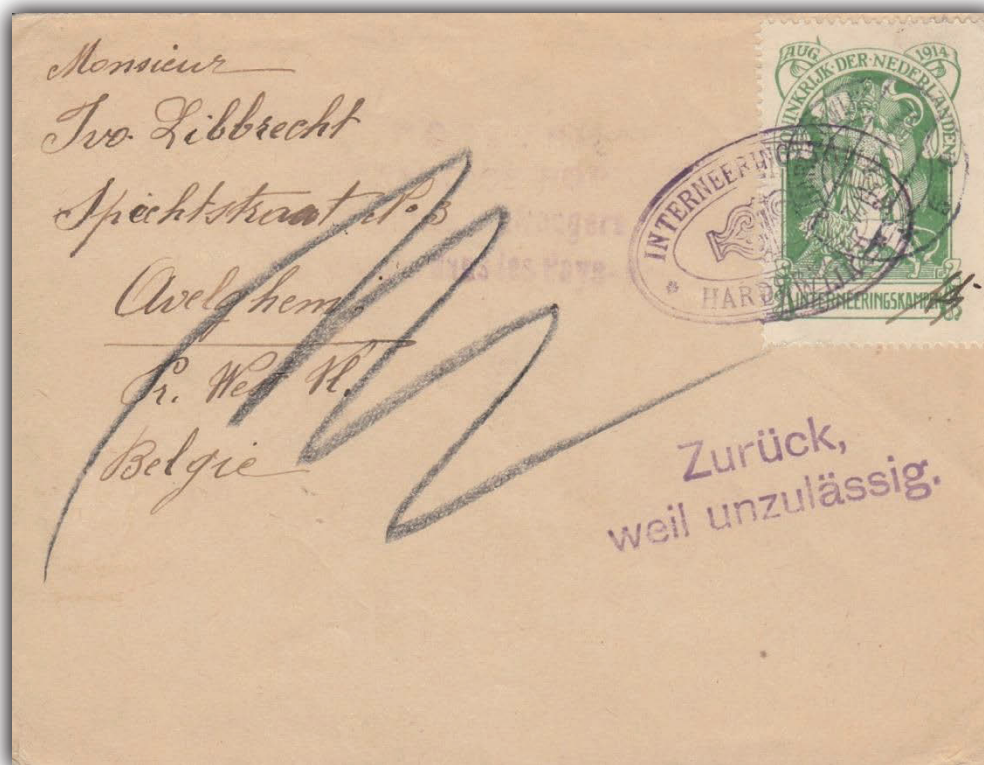 Monsieur
Ivo Libbrecht
Spechtstraat No. 3
Avelghem
Pr. West Vl.
Belgie
AUG. 1914
KONINKRIJK·DER·NEDERLANDEN
INTERNEERINGSKAMPEN
INTERNEERINGS
HARDERWIJK
dans les Pays
Zurück,
weil unzulässig.